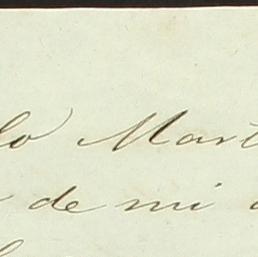 lo Mart
de mi